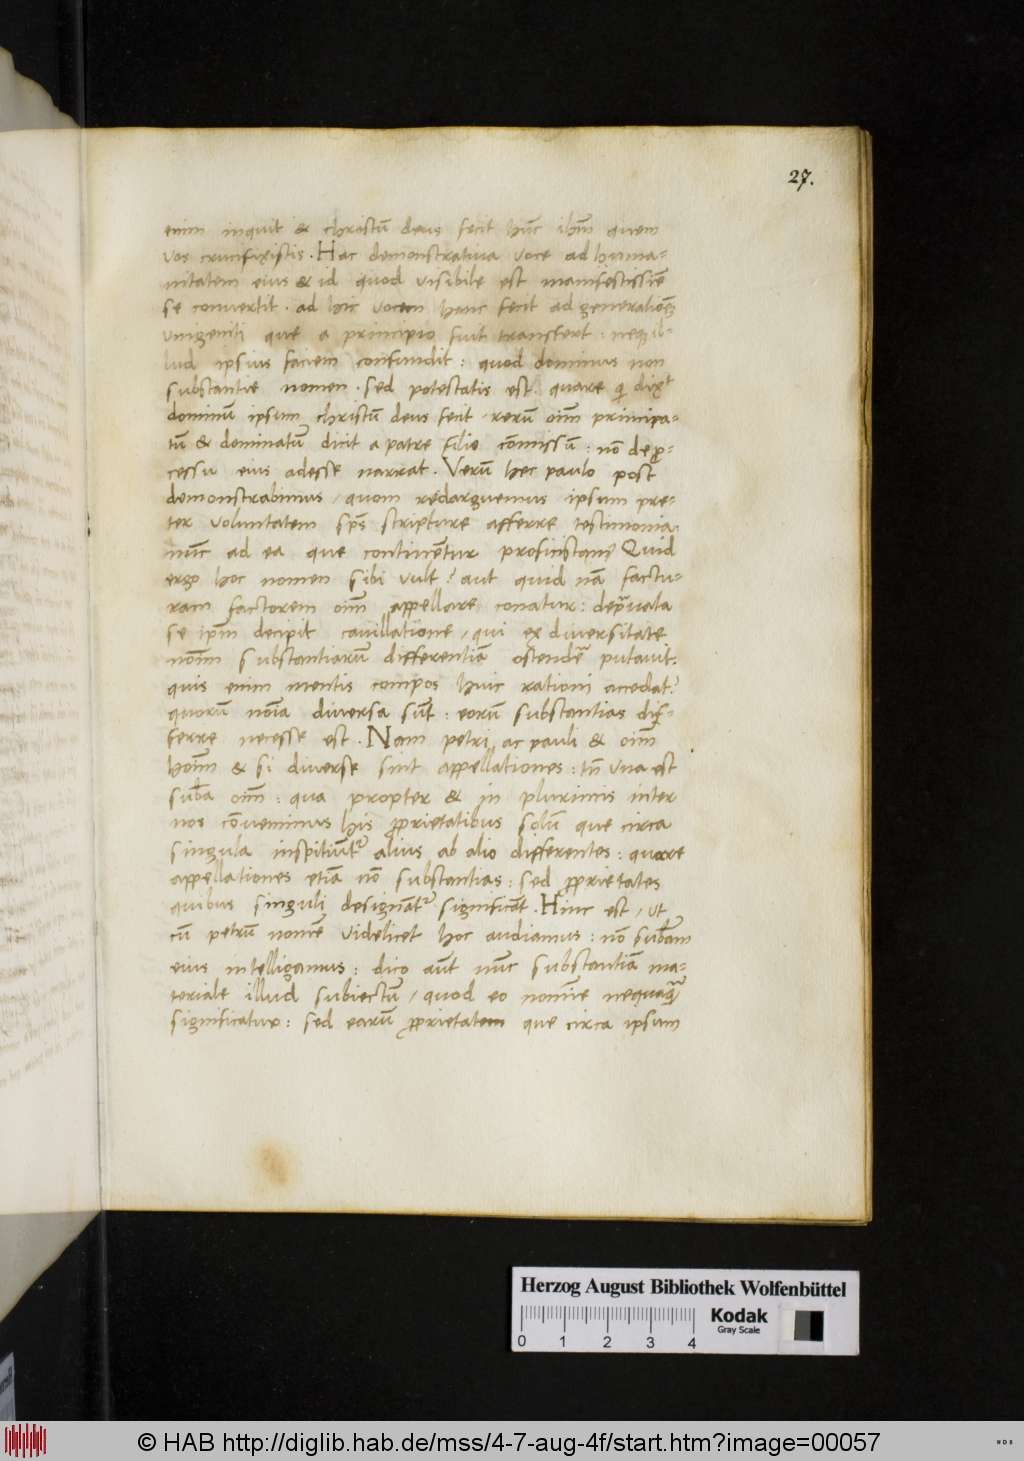 27.
enim inquit & christũ deus fecit hũc ihm̃ quem
vos crucifixistis. Hac demonstrativa voce ad huma-
nitatem eius & id quod visibile est manifestissĩe
se convertit. ad hic vocem hanc fecit ad generationẽ
unigeniti que a principio fuit transfert. neq; il-
lud ipsius faciem confundit: quod dominus non
substantie nomen. sed potestatis est. quare q̃ dixt
dominũ ipsum christũ deus fecit. rerũ oim̃ principa-
tũ & dominatũ dicit a patre filio cõmissũ: nõ de ꝓ-
cessu eius adesse narrat. Verũ hec paulo post
demonstrabimus / quom redarguemus ipsum pre-
ter voluntatem sp̃s scripture afferre testimonia.
nũc ad ea que continẽtur proficistam̃ Quid
ergo hoc nomen sibi vult? aut quid nã factu-
ram factorem oim̃ appellare conatur: depͣvata
se ip̃m decipit cavillatione / qui ex diversitate
noĩm substantiarũ differentiã ostendẽ putavit.
quis enim mentis compos huic rationi accedat?
quorũ noĩa diversa sũt: eorũ substantias dif-
ferre necesse est. Nam petri ac pauli & oim̃
hoĩm & si diverse sint appellationes: tñ una est
sub̃a oim̃: qua propter & in plurimis inter
nos cõvenimus his ꝓprietatibus solũ que circa
singula inspitiũtʳ alius ab alio differentes: quare
appellationes etiã nõ substantias: sed ꝓprietates
quibus singuli designãtʳ significãt. Hinc est / ut
cũ petrũ nomĩe videlicet hoc audiamus: nõ sub̃am
eius intelligamus: dico aũt nũc substantiã ma-
teriale illud subiectũ / quod eo nomĩe nequaq̃
significatur: sed earũ ꝓprietatem que circa ipsum
Herzog August Bibliothek Wolfenbüttel
Kodak
Gray Scale
0 1 2 3 4
© HAB http://diglib.hab.de/mss/4-7-aug-4f/start.htm?image=00057